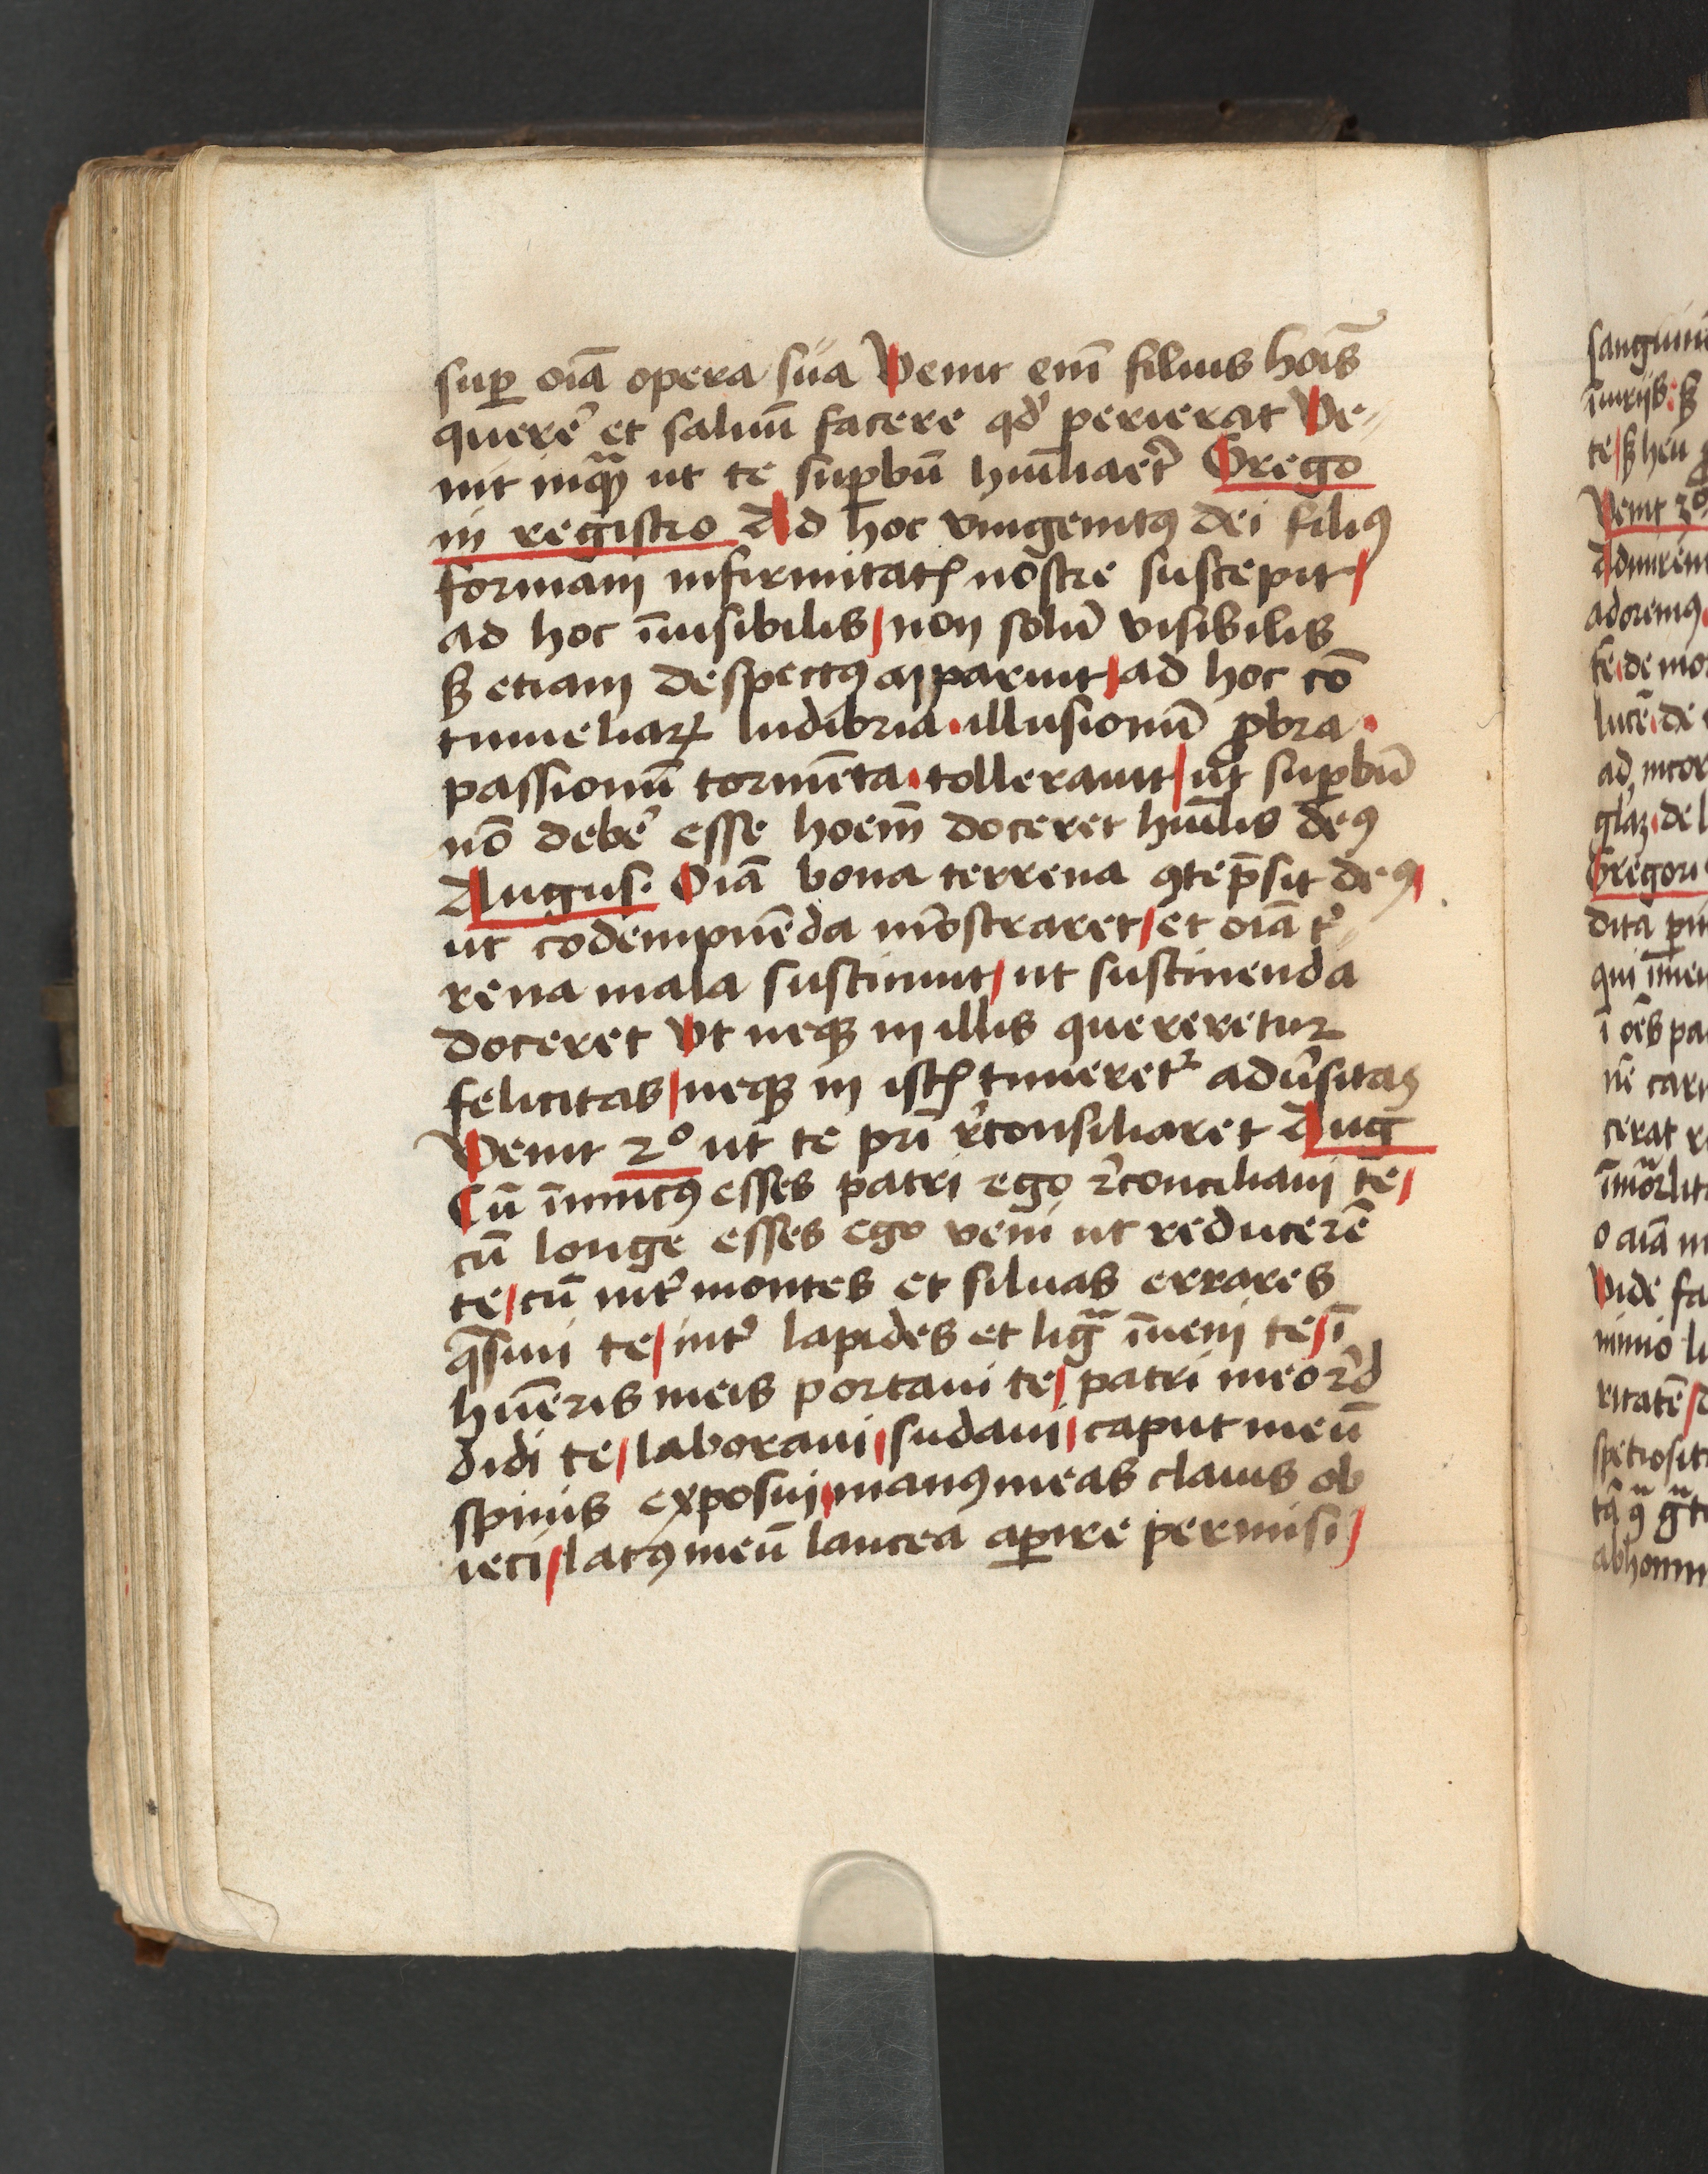 suꝑ oīa opera sua Venit enī filius hoīs
querē et saluū facere qd' perierat Ve-
nit inquā ut te suꝑbū humiliaret Grego
in registro Ad hoc vnigenitꝰ dei filiꝰ
formam infirmitatꝭ nostre suscepit/
ad hoc īuisibilis/non solū visibilis
sꝫ etiam despectꝰ apparuit/ad hoc cō
tumeliaꝝ ludibria·illusionū ꝓbra·
passionū tormēta·tollerauit/ut suꝑbū
nō debē esse hoēm doceret humilis deꝰ
Augus· Oīa bona terrena ꝯtēpsit deꝰ/
ut codempnēda mōstraret/et oīa t'-
rena mala sustinuit/ut sustinenda
doceret Vt neqꝫ in illis quereretur
felicitas/neqꝫ in istꝭ timeret' adu'sitas
Venit 2º ut te pri r'consiliaret Aug
Cū īimicꝰ esses patri ego r'conciliaui te/
cū longe esses ego veni ut reducerē
te/cū int' montes et siluas errares
q̄siui te/int' lapides et liḡ īueni te/ī
humēris meis portaui te/patri meo r'd
didi te/laboraui/sudaui/caput meū
spinis exposui/manꝰ meas clauis ob
ieci/latꝰ meū lancea aꝑire permisi/
sanguin
īiurijs·sꝫ
te/sꝫ heu
Venit 3º
adoremꝰ
lucē·de
Gregori
dita
cerat
Vide fa
ritatē/